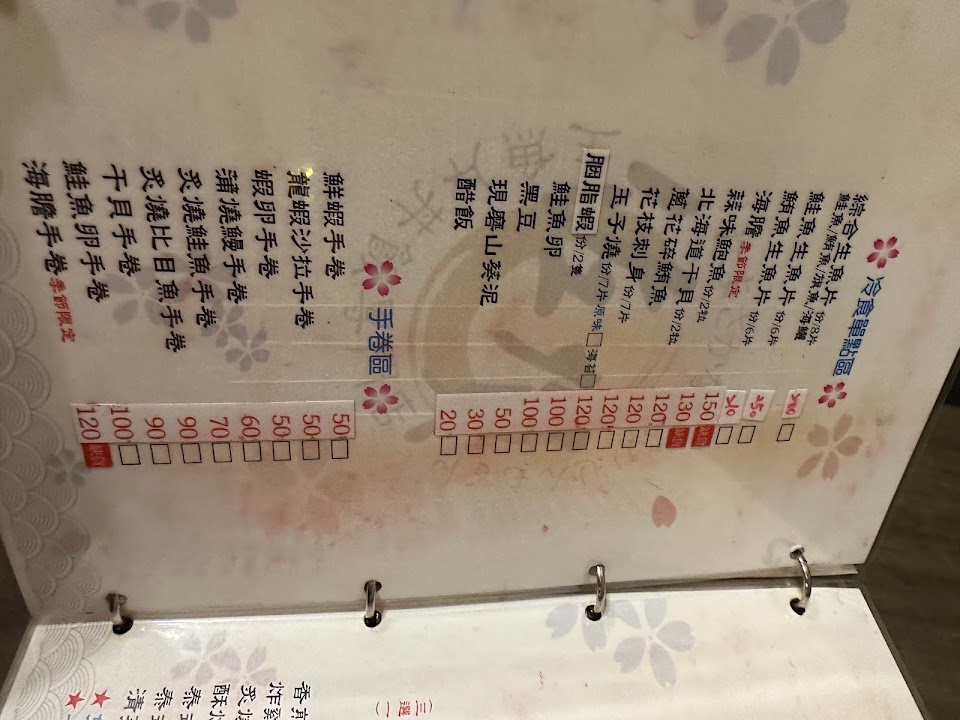 冷食單點區
綜合生魚片 份/8片 300
鮭魚/鮪魚/旗魚/海鱺
鮭魚生魚片 份/6片 250
鮪魚生魚片 份/6片 210
海膽 季節限定 150 缺貨
味鮑魚 份/2粒 130 缺貨
北海道干貝 份/2粒 120
蔥花碎鮪魚 120
花枝刺身 份/7片 120
玉子燒 份/7片 原味□ 海苔□ 120
胭脂蝦 份/2隻 100
鮭魚卵 100
黑豆 50
現磨山葵泥 30
醋飯 20
手卷區
鮮蝦手卷 50
龍蝦沙拉手卷 50
蝦卵手卷 50
蒲燒鰻手卷 60
炙燒鮭魚手卷 70
炙燒比目魚手卷 90
干貝手卷 90
鮭魚卵手卷 100
海膽手卷 季節限定 120 缺貨
(三選一)